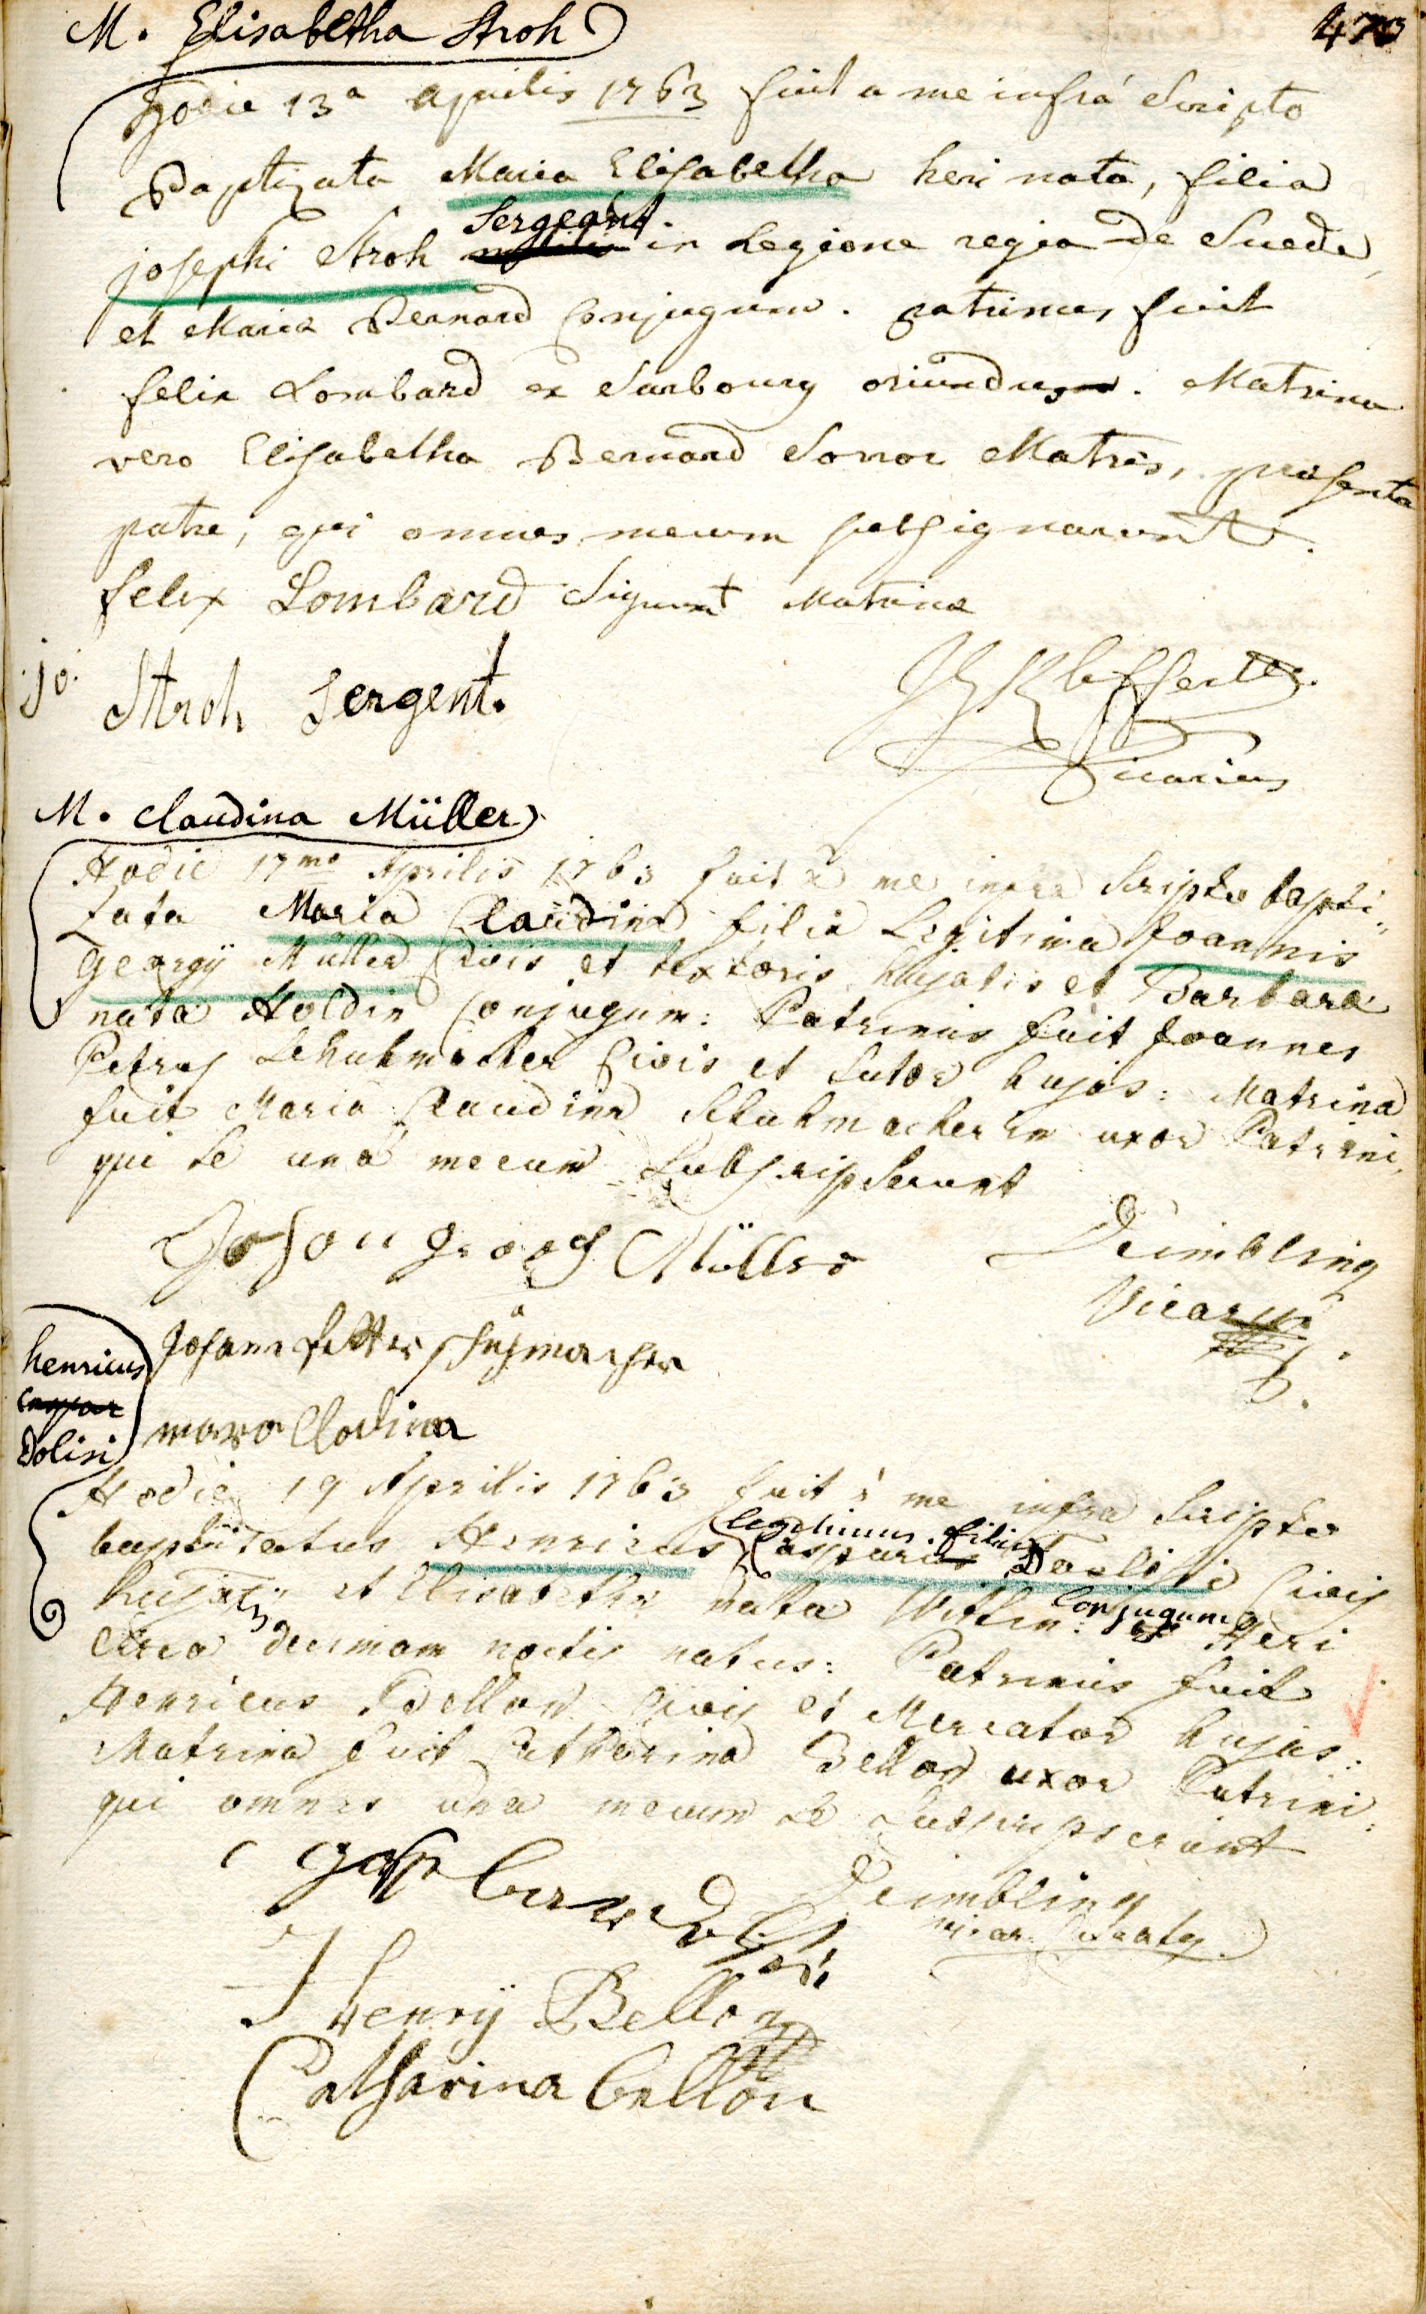 M. Elisabetha Stroh
473
Hodie 13a Aprilis 1763 fuit a me infrá Scripto
Baptizata Maria Elisabetha heri nata, filia
Sergeant
josephi Stroh in Legione regia de Suede,
et Maria Bernard Conjugum. patrinus fuit
felix Lombard ex Sarbourg oriundus. Matrina
vero Elisabetha Bernard Soror Matris, presente
patre, qui omnes mecum subsignarunt.
felix Lombard Signum + Matrinæ
jo: Stroh Sergent.
Vicarius
M. Claudina Müller
Hodie 17mo Aprilis 1763 fuit à me infra Scripto bapti
zata Maria Claudina filia Legitima Joannis
Georgÿ Müller Civis et textoris hujatis et Barbara
nata Holdin Conjugum: Patrinus fuit Joannes
Petrus Schuhmacher Civis et Sutor hujas: Matrina
fuit Maria Claudina Schuhmacherin uxor Patrini
qui se unà mecum Subscripserunt
Johan Georg Müller
Deimbling
Vicarius
Johann Petter Schuhmacher
maria Clodina
henricus
caspar
Dolisi
Hodie 19 Aprilis 1763 fuit à me infra Scripto
legitimus filius
baptizatus Henricus Caspari Doolisi Civis
Conjugum
hujatis et Elisabetha nata Wittin: Heri
circa decimam noctis natus: Patrinus fuit
Henricus Bellon Civis et Mercator hujas:
Matrina fuit Catharina Bellon uxor Patrini:
qui omnes una mecum se Subscripserunt
Deimbling
Henrÿ Bellon
Catharina bellon